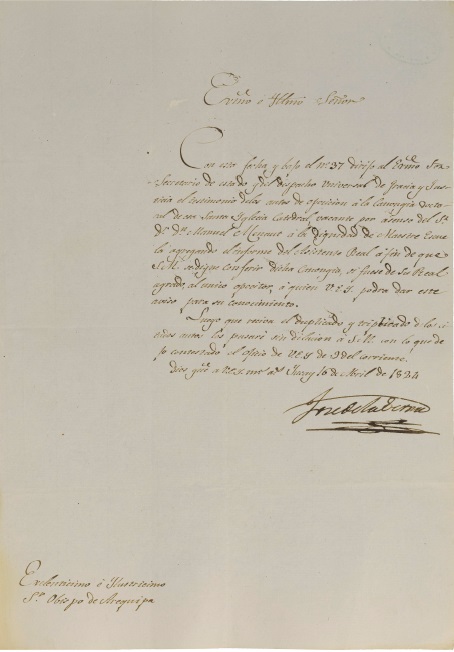 Exmo é Yllmo Señor
Con esta fecha y bajo el No. 37 dirijo al Exmo Sor
Secretario de estado y del despacho Universal de Gracia y Jus-
ticia el testimonio de los autos de oposicion á la Canongia Docto-
ral de esta Santa Iglesia Catedral vacante por ascenso del Sr.
Dr. Dn. Manuel á la Dignidad de Maestre Escue
la agregando el informe del Asistente Real á fin de que
S.M. se digne conferir dicha Canongia, si fuese de Su Real
agrado al unico opositor, á quien V.E.Y. podra dar este
aviso para su conocimiento.
Luego que reciva el duplicado y triplicado de los ci
tados autos los pasaré sin dilacion á S.M. con lo que de-
jo contestado el oficio de V.E.Y. de 9 del corriente.
Dios gue. á V.E.Y. ms. as. Yucay 16 de Abril de 1824
José de la Serna
Exelentisimo é Ilustrisimo
Sr. Obispo de Arequipa